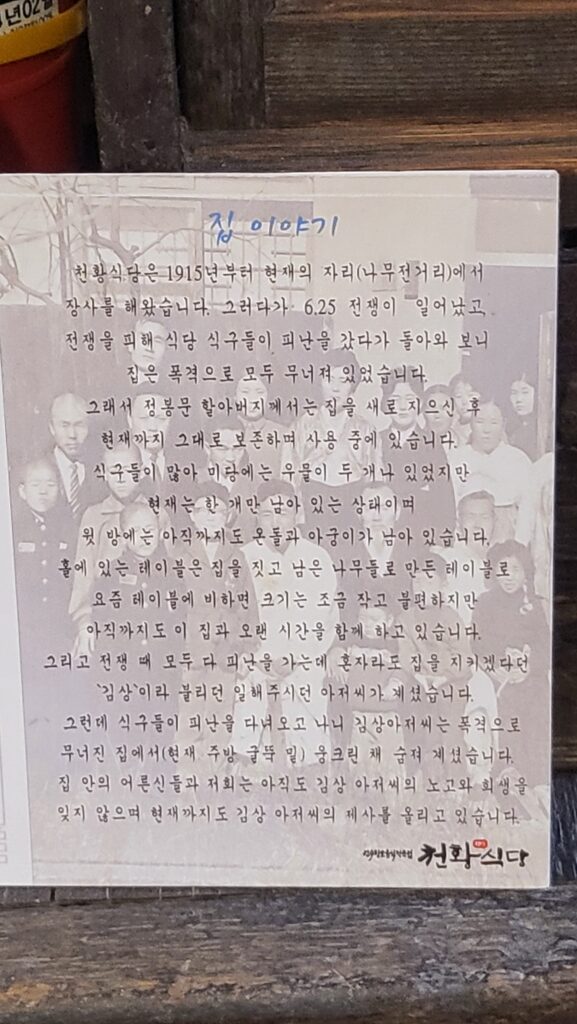 년02월
집 이야기
천황식당은 1915년부터 현재의 자리(나무전거리)에서
장사를 해왔습니다. 그러다가 6.25 전쟁이 일어났고,
전쟁을 피해 식당 식구들이 피난을 갔다가 돌아와 보니
집은 폭격으로 모두 무너져 있었습니다.
그래서 정봉문 할아버지께서는 집을 새로 지으신 후
현재까지 그대로 보존하며 사용 중에 있습니다.
식구들이 많아 마당에는 우물이 두 개나 있었지만
현재는 한 개만 남아 있는 상태이며
윗 방에는 아직까지도 온돌과 아궁이가 남아 있습니다.
홀에 있는 테이블은 집을 짓고 남은 나무들로 만든 테이블로
요즘 테이블에 비하면 크기는 조금 작고 불편하지만
아직까지도 이 집과 오랜 시간을 함께 하고 있습니다.
그리고 전쟁 때 모두 다 피난을 가는데 혼자라도 집을 지키겠다던
'김상'이라 불리던 일해주시던 아저씨가 계셨습니다.
그런데 식구들이 피난을 다녀오고 나니 김상아저씨는 폭격으로
무너진 집에서(현재 주방 굴뚝 밑) 웅크린 채 숨져 계셨습니다.
집 안의 어른신들과 저희는 아직도 김상 아저씨의 노고와 희생을
잊지 않으며 현재까지도 김상 아저씨의 제사를 올리고 있습니다.
천황식당